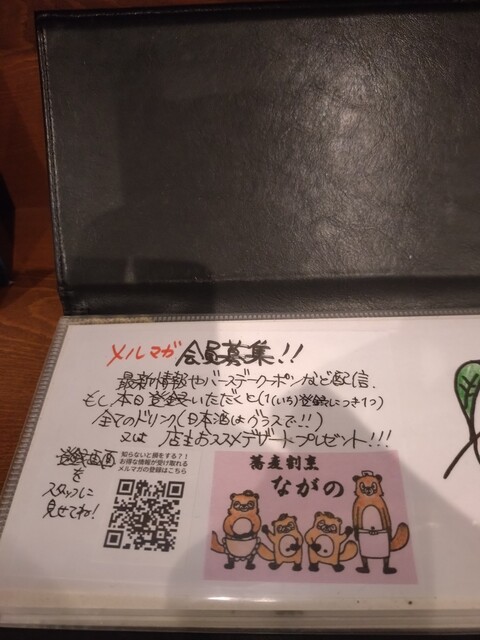 メルマガ 会員募集!!
最新情報やバースデークーポンなど配信.
もし本日登録いただくと(1(いち)登録につき1つ)
全てのドリンク(日本酒はグラスで!!)
又は 店主おススメデザートプレゼント!!!
登録画面
を
スタッフに
見せてね!
知らないと損をする?!
お得な情報が受け取れる
メルマガの登録はこちら
蕎麦割烹
ながの